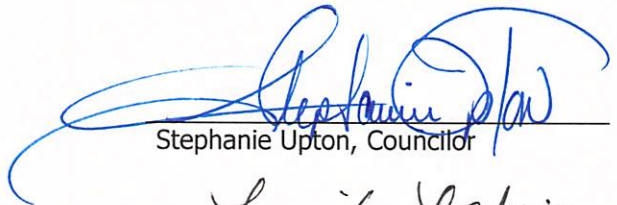 Stephanie Upton
Stephanie Upton, Councilor